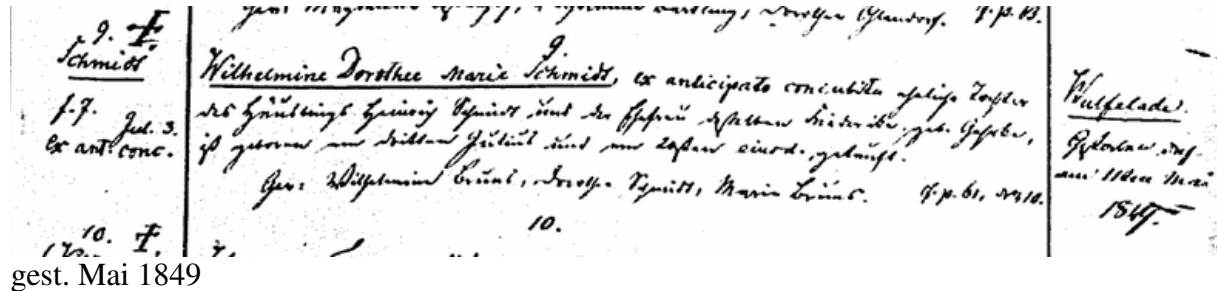 Gev: Magdalene Dorothee Ohlendorf. f. p. 63.
9. †.
Schmidt
f. 7. Jul. 3.
ex ant: conc.
9.
Wilhelmine Dorothee Marie Schmidt, ex anticipato concubitu eheliche Tochter
des Häuslings Heinrich Schmidt und der Ehefrau desselben Friederike, geb. Gehrke,
ist geboren am dritten Julius und am 20sten eiusd. getauft.
Gev: Wilhelmine Bruns, Dorothe Schmidt, Marie Bruns. f. p. 61, №10.
Wulfelade.
Gestorben das.
am 11ten Mai
1849.
10. †.
10.
gest. Mai 1849